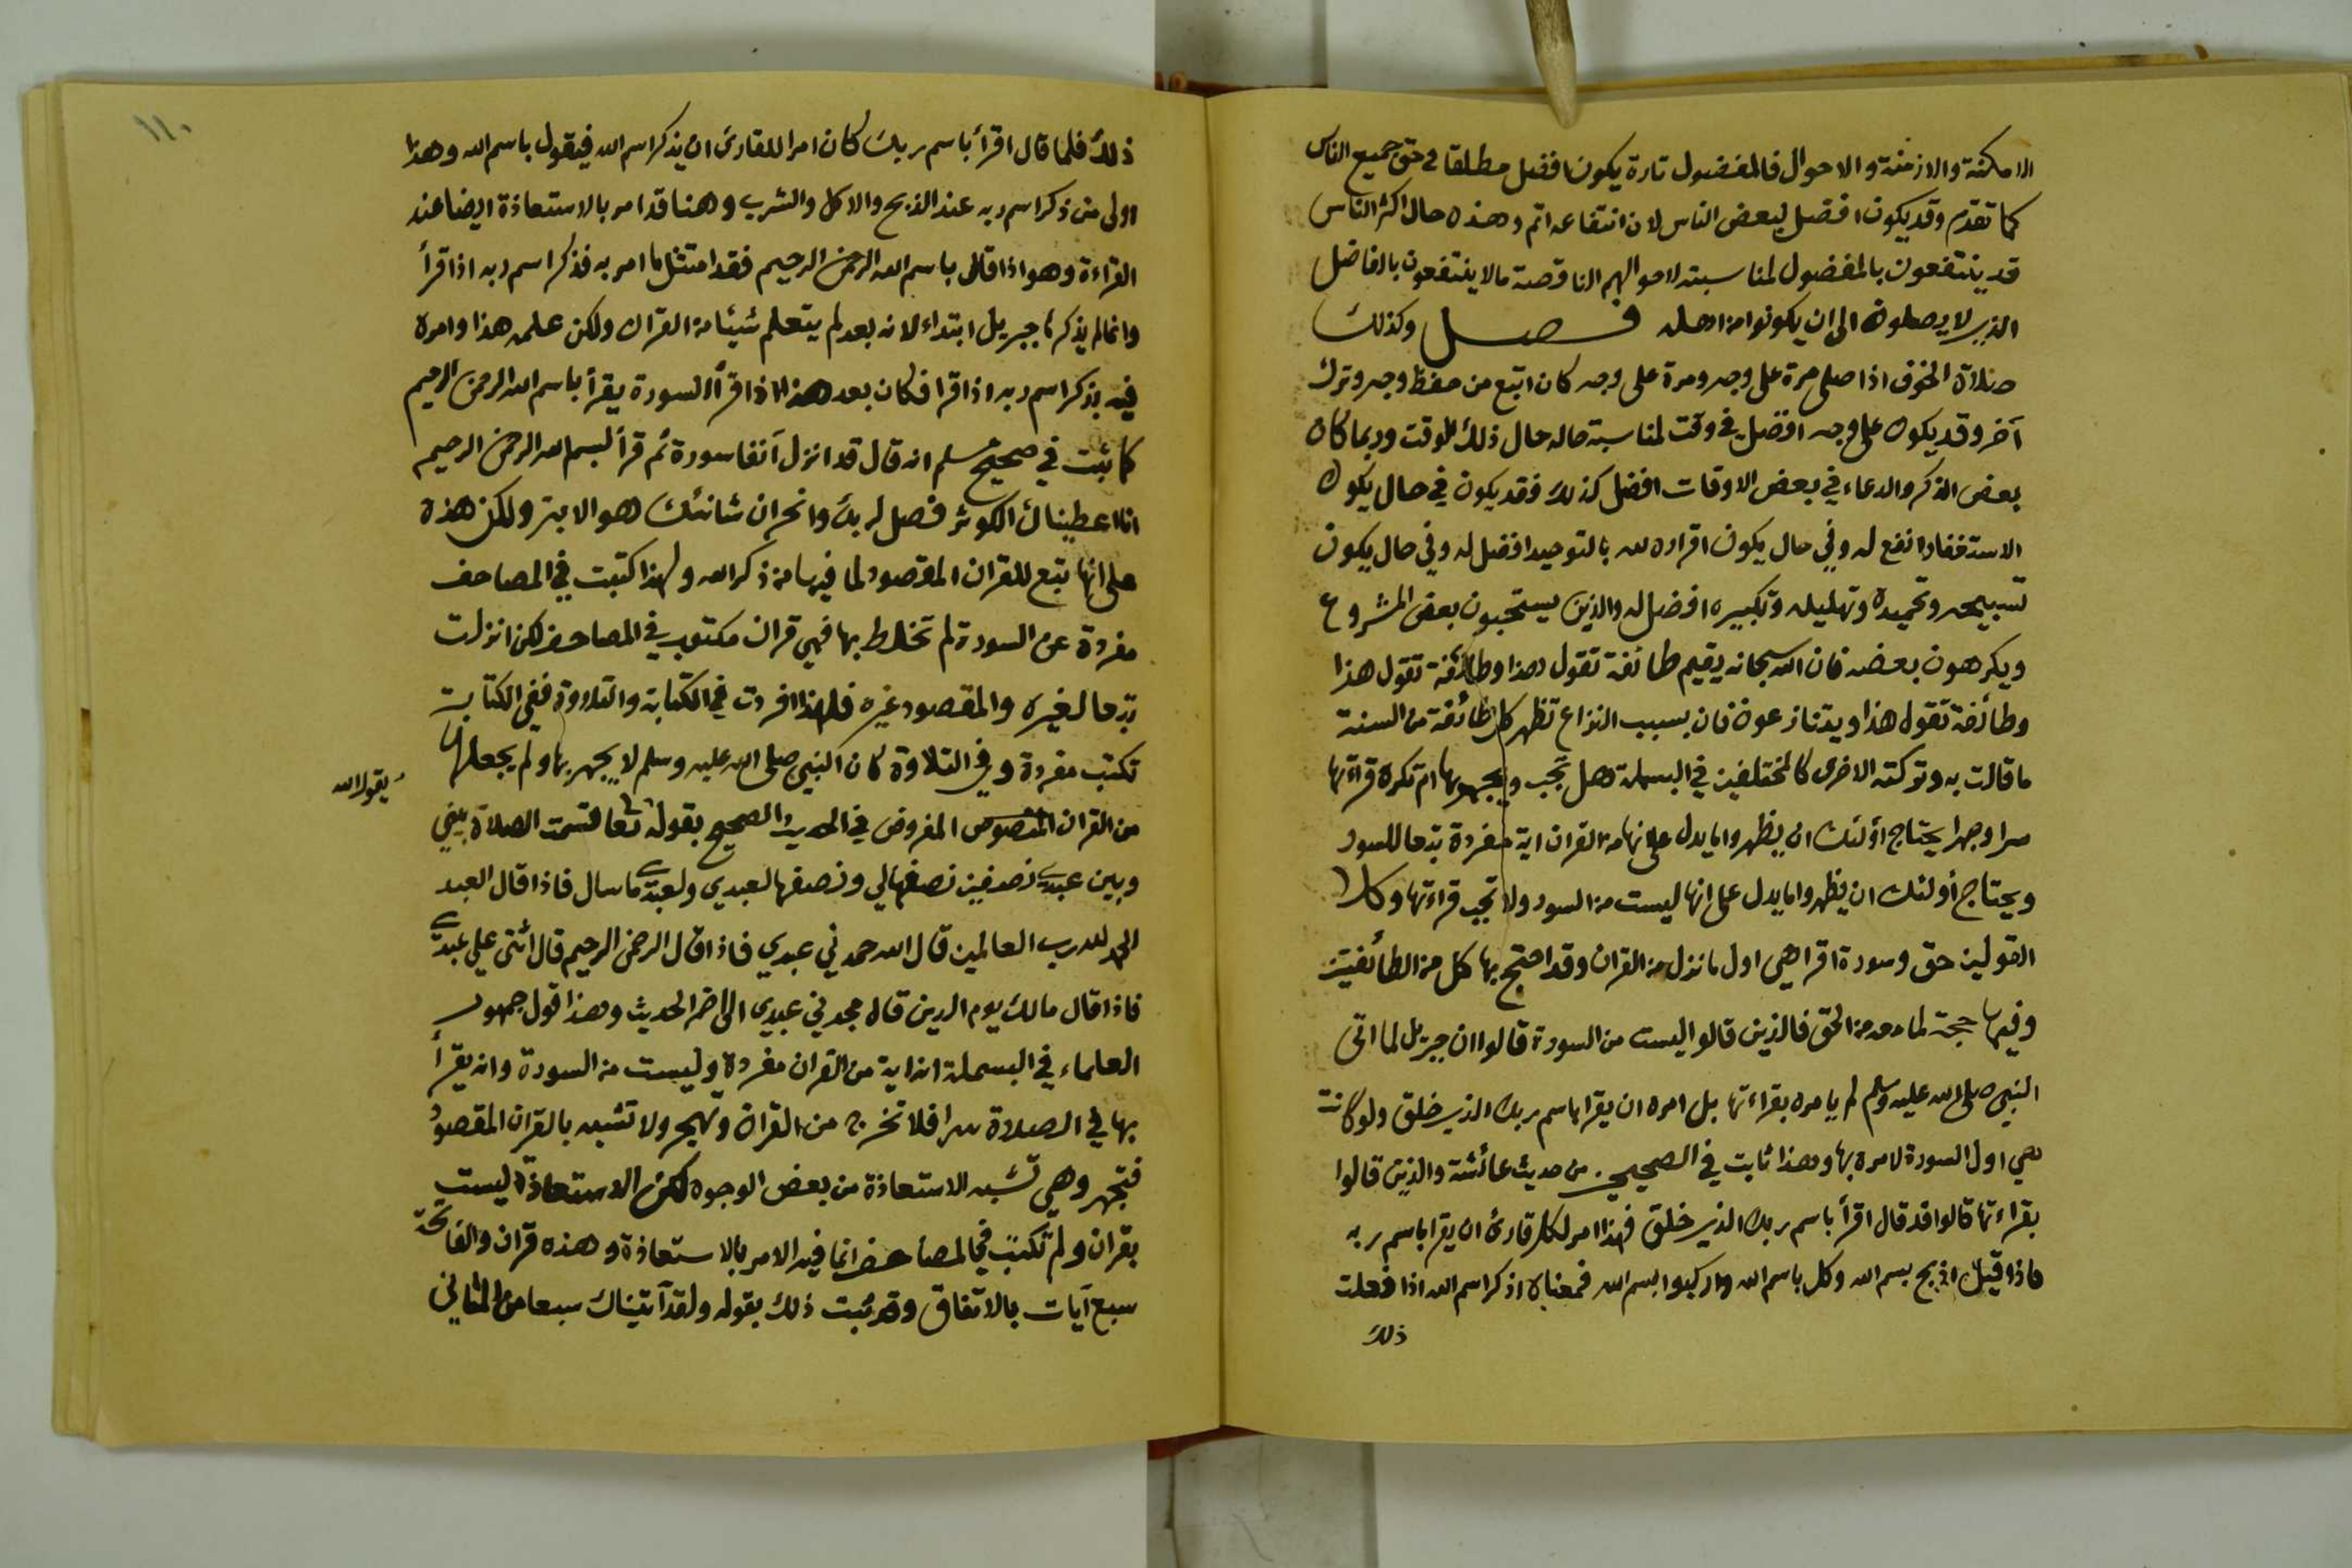 الامكنة والازمنة والاحوال فالمفضول تارة يكون افضل مطلقا في حق جميع الناس
كما تقدم وقد يكون افضل لبعض الناس لان انتفاعه اتم وهذه حال اكثر الناس
قد ينتفعون بالمفضول لمناسبته لاحوالهم الناقصة مالا ينتفعون بالفاضل
الذي لا يصلون الى ان يكونوا من اهله فصل وكذلك
صلاة الخوف اذا صلى مرة على وجه ومرة على وجه كان اتبع من حفظ وجه وترك
آخر وقد يكون على وجه افضل في وقت لمناسبة حاله حال ذلك الوقت وربما كان
بعض الذكر والدعاء في بعض الاوقات افضل كذلك فقد يكون في حال يكون
الاستغفار انفع له وفي حال يكون اقراره لله بالتوحيد افضل له وفي حال يكون
تسبيحه وتحميده وتهليله وتكبيره افضل له والذين يستحبون بعض المشروع
ويكرهون بعضه فان الله سبحانه يقيم طائفة تقول هذا وطائفة تقول هذا
وطائفة تقول هذا ويتنازعون فان بسبب النزاع تظهر كل طائفة من السنة
ما قالت به وتركته الاخرى كالمختلفين في البسملة هل تجب ويجهر بها ام تكره قراءتها
سرا وجهرا يحتاج أولئك ان يظهروا ما يدل على انها من القران اية مفردة تبعا للسور
ويحتاج أولئك ان يظهروا ما يدل على انها ليست من السور ولا تجب قراءتها وكلا
القولين حق وسورة اقرا هي اول ما نزل من القران وقد احتج بها كل من الطائفتين
وفيها حجة لما معه من الحق فالذين قالوا ليست من السورة قالوا ان جبريل لما اتى
النبي صلى الله عليه وسلم لم يامره بقراءتها بل امره ان يقرا باسم ربك الذي خلق ولو كانت
هي اول السورة لامره بها وهذا ثابت في الصحيح من حديث عائشة والذين قالوا
بقراءتها قالوا قد قال اقرأ باسم ربك الذي خلق فهذا امر لكل قارئ ان يقرا باسم ربه
فاذا قيل اذبح بسم الله وكل باسم الله واركبوا بسم الله فمعناه اذكر اسم الله اذا فعلت
ذلك
١١٠
ذلك فلما قال اقرأ باسم ربك كان امرا للقارئ ان يذكر اسم الله فيقول باسم الله وهذا
اولى من ذكر اسم ربه عند الذبح والاكل والشرب وهنا قد امر بالاستعاذة ايضا عند
القراءة وهو اذا قال باسم الله الرحمن الرحيم فقد امتثل ما امر به فذكر اسم ربه اذا قرأ
وانما لم يذكرها جبريل ابتداء لانه بعد لم يتعلم شيئا من القران ولكن علمه هذا وامره
فيه بذكر اسم ربه اذا قرا فكان بعد هذا اذا قرأ السورة يقرأ باسم الله الرحمن الرحيم
كما ثبت في صحيح مسلم انه قال قد انزل آنفا سورة ثم قرأ بسم الله الرحمن الرحيم
انا اعطيناك الكوثر فصل لربك وانحر ان شانئك هو الابتر ولكن هذه
على انها تبع للقران المقصود لما فيها من ذكر الله ولهذا كتبت في المصاحف
مفردة عن السورة لم تخلط بها فهي قران مكتوب في المصاحف لكن انزلت
تبعا لغيره والمقصود غيره فلهذا افردت في الكتابة والتلاوة ففي الكتابة
تكتب مفردة وفي التلاوة كان النبي صلى الله عليه وسلم لا يجهر بها ولم يجعلها
من القران المنصوص المفروض في الحديث الصحيح بقوله تعالى قسمت الصلاة بيني
يقول الله
وبين عبدي نصفين نصفها لي ونصفها لعبدي ولعبدي ما سال فاذا قال العبد
الحمد لله رب العالمين قال الله حمدني عبدي فاذا قال الرحمن الرحيم قال اثنى علي عبدي
فاذا قال مالك يوم الدين قال مجدني عبدي الى اخر الحديث وهذا قول جمهور
العلماء في البسملة انها اية من القران مفردة وليست من السورة وانه يقرأ
بها في الصلاة سرا فلا تخرج من القران وتهجر ولا تشبه بالقران المقصود
فتجهر وهي تشبه الاستعاذة من بعض الوجوه لكن الاستعاذة ليست
بقران ولم تكتب في المصاحف انما فيه الامر بالاستعاذة وهذه قران والفاتحة
سبع آيات بالاتفاق وقد ثبت ذلك بقوله ولقد آتيناك سبعا من المثاني